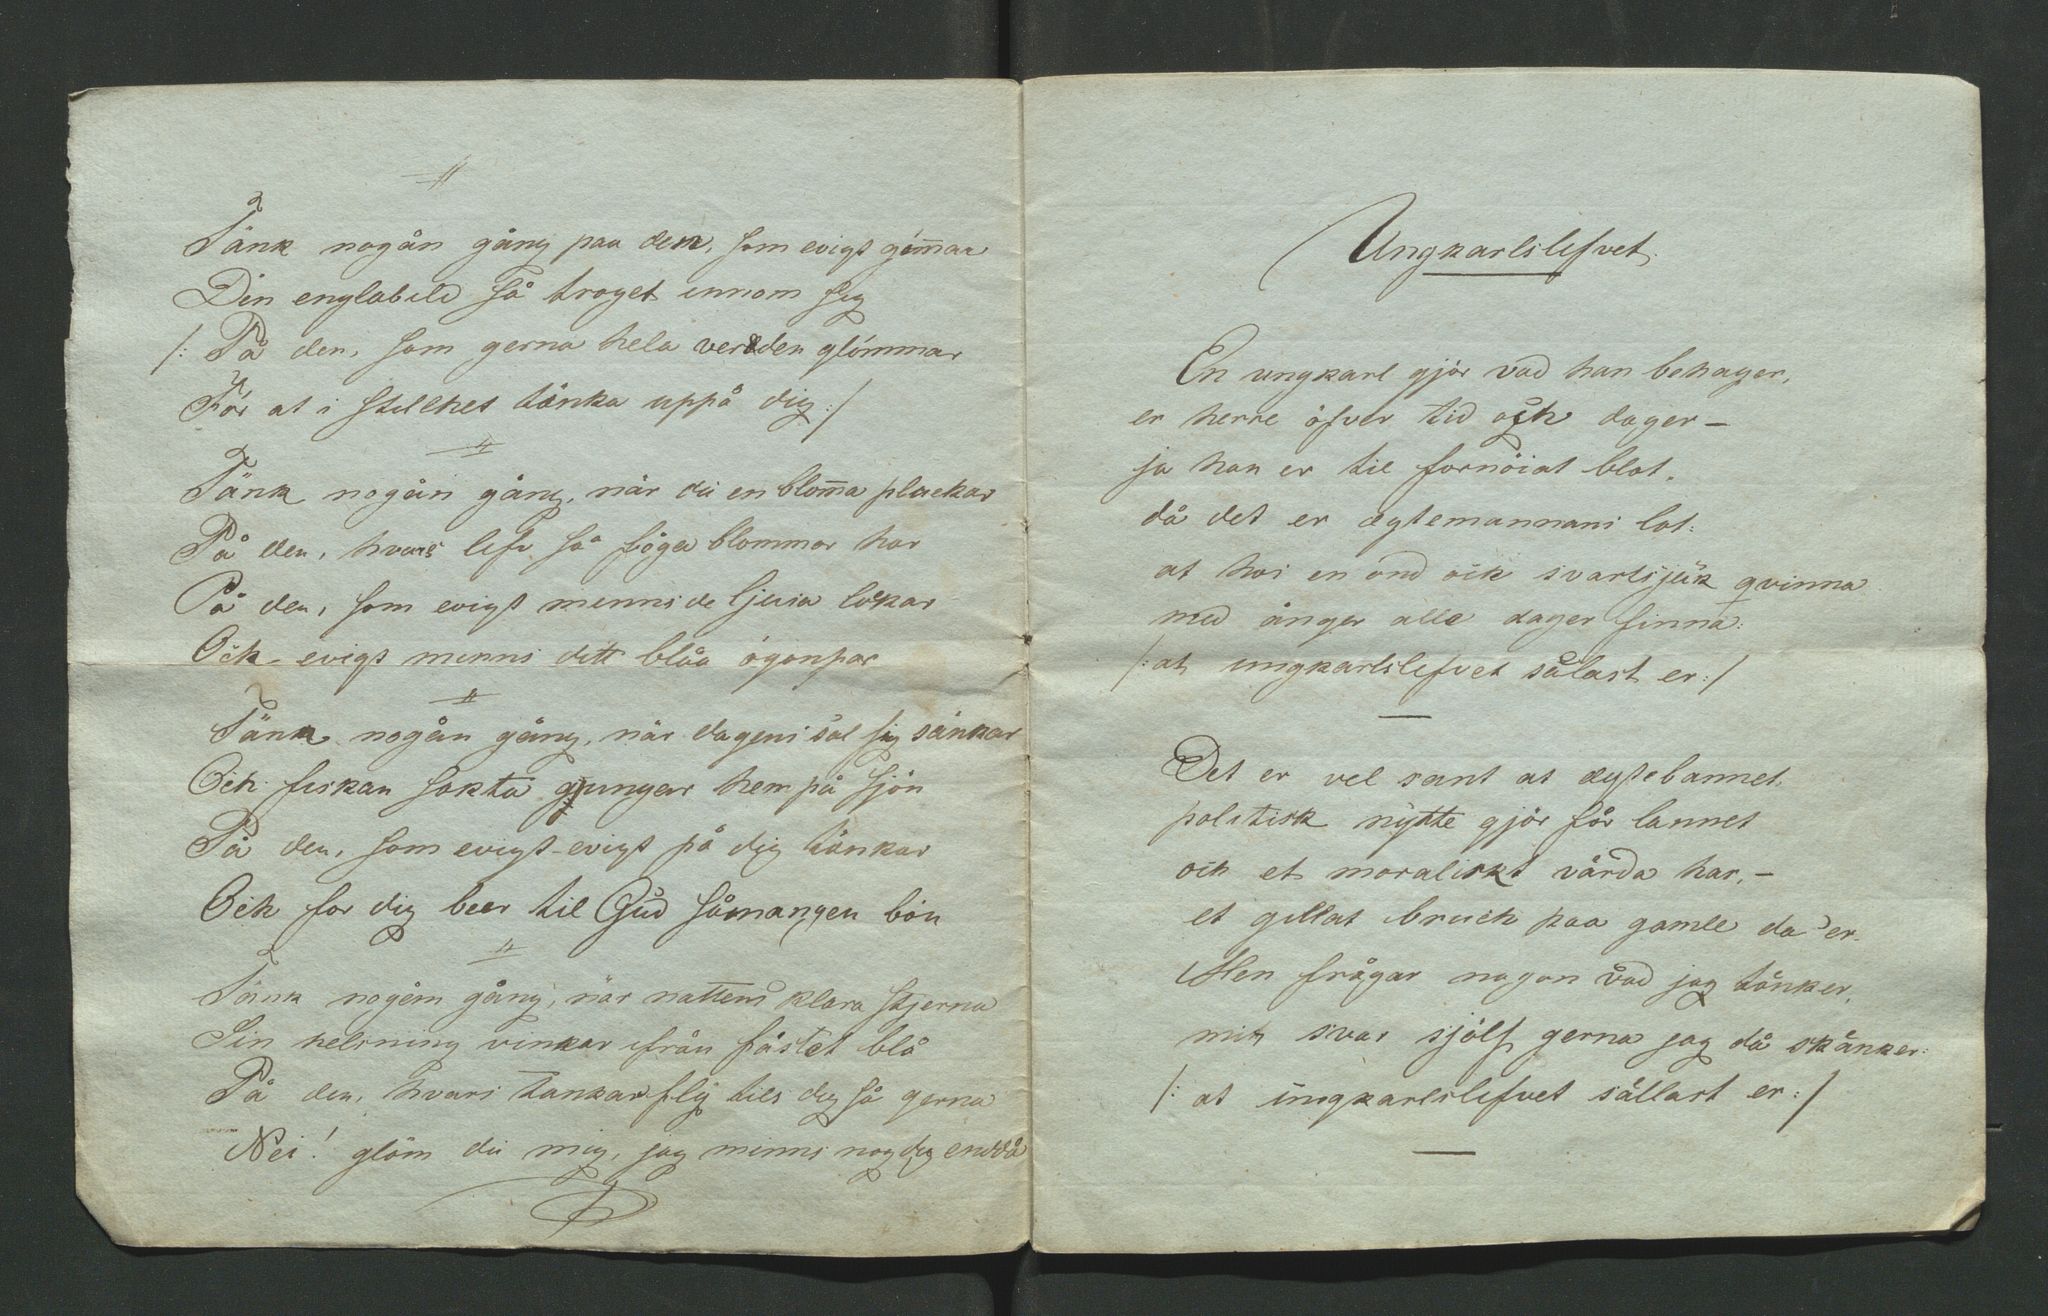 Tänk nogån gång paa den, som evigt gömmar
Din englabild så troget innom sig
/: På den, som gerna hela verlden glömmar
För at i stillhet tänka uppå dig :/
Tänk nogån gång, när du en blom̅a pluckar
På den, hvars lefv så föga blommor har
På den, som evigt minns de ljusa lockar
Och evigt minns ditt blåa ögonpar
Tänk nogån gång, när dagens sol sig sänkar
Och fiskan sakta gungar hem på sjön
På den, som evigt-evigt på dig tänkar
Och for dig beer til Gud såmangen bön
Tänk nogån gång, när nattens klara stjerna
Sin helsning vinkar ifrån fästet blå
På den, hvars tankar flÿ tils dig så gerna
Nei! glöm du mig, jag minns nog dig enddå
Ungkarlslefvet.
En ungkarl gjör vad han behager,
er herre öfver tid och dager –
ja han er til fornöiat blot,
då det er ægtemannans lot:
at hos en ond och svartsjuk qvinna
med ånger alle dager finna:
/: at ungkarlslefvet sålast er :/
Det er vel sant at ægtebannet
politisk nÿtte gjör får lannet
och et moraliskt vårda har, –
et gillat bruch paa gamle da'er.
Men frågar nogon våd jag tänker,
mit svar sjölf gerna jag då skänker:
/: at ungkarlslefvet sällast er :/